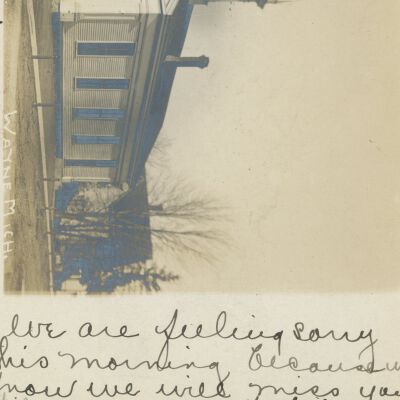 WAYNE MICH.
We are feeling sorry
this morning because w
know we will miss you